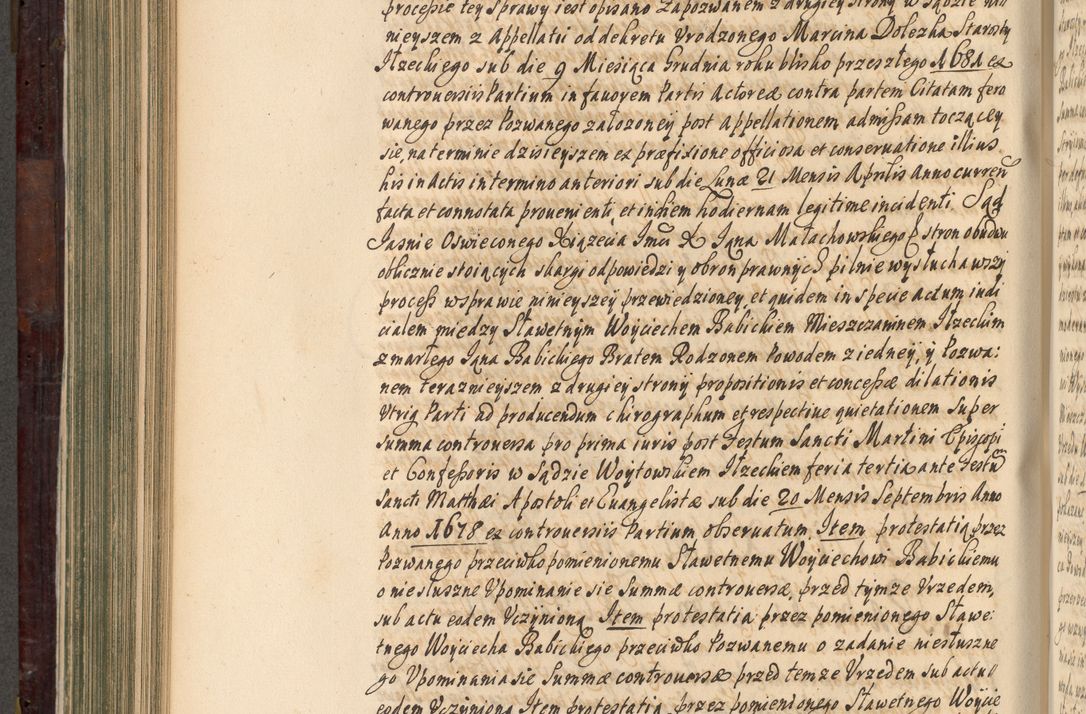 processie tey sprawy iest opisano Zapozwanem z drugiey strony w Sądzie
nieyszem z Appellatii od dekretu Vrodzonego Marcina Dolezha Starosty
Iłzeckiego sub die 9 Miesiąca Grudnia roku blisko przeszłego 1681 ex
controversiis Partium in favorem Partis Actoreæ contra partem Citatam fero
wanego przez Pozwanego założoney post appellationem admissam toczącey
się, na terminie dzisieyszem ex præfixione officiosa et conservatione illius
his in Actis in termino anteriori sub die Lunæ 21 Mensis Aprilis Anno curren
facta et connotata provenienti, et in diem hodiernam legitime incidenti. Sąd
Jasnie Oswieconego Xiązecia Jmci X Jana Małachowskiego stron obudwu
oblicznie stoiących skargi odpowiedzi y obron prawnych pilnie wysłuchawszy
process w sprawie ninieyszey przewiedzioney, et quidem in specie actum iudi
cialem między Sławetnym Woyciechem Babickiem Mieszczaninem Iłzeckim
zmarłego Jana Babickiego Bratem Rodzonem Powodem z iedney, y Pozwa:
nem terazniejszem z drugiey strony propositionis et concessæ dilationis
Vtriq Parti ad producendum chirographum et respective quietationem super
summa controversa pro prima iuris post Festum Sancti Martini Episcopi
et Confessoris w Sądzie Woytowskiem Iłzeckiem feria tertia ante Festum
Sancti Matthæi Apostoli et Evangelistæ sub die 20 Mensis Septembris Anno
Anno 1678 ex controversiis Partium observatum. Item protestatią przez
Pozwanego przeciwko pomienionemu Sławetnemu Woyciechowi Babickiemu
o niesłuszne Vpominanie sie Summæ controversæ, przed tymze Vrzedem,
sub actu eodem Vczynioną Item protestatia przez pomienionego Sławe:
tnego Woyciecha Babickiego przeciwko Pozwanemu o zadanie niesłuszne
go Vpominania sie Summæ controversæ przed temze Vrzedem sub actu
eodem Vczyniona Item protestatia, przez pomienionego Sławetnego Woycie